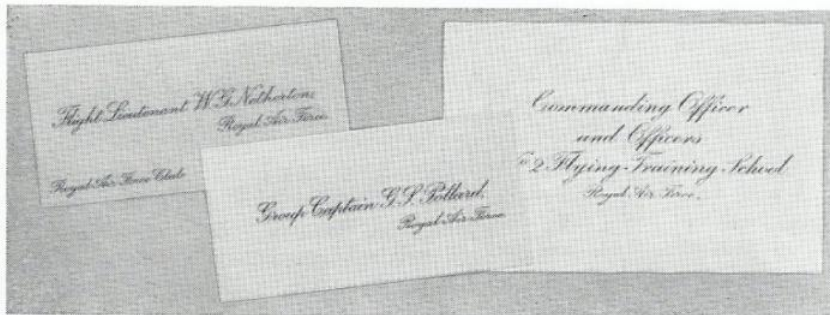 Flight Lieutenant W. G. Netherton,
Royal Air Force.
Royal Air Force Club
Group Captain G. S. Pollard,
Royal Air Force.
Commanding Officer
and Officers
No 2 Flying Training School
Royal Air Force.